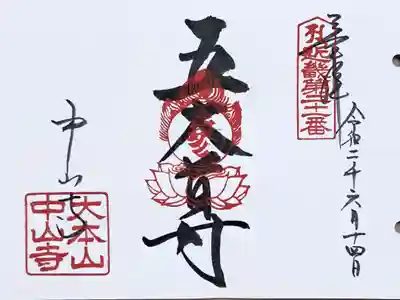 奉拝
第二十一番
令和二年六月十四日
五大尊
中山寺
大本山
中山寺